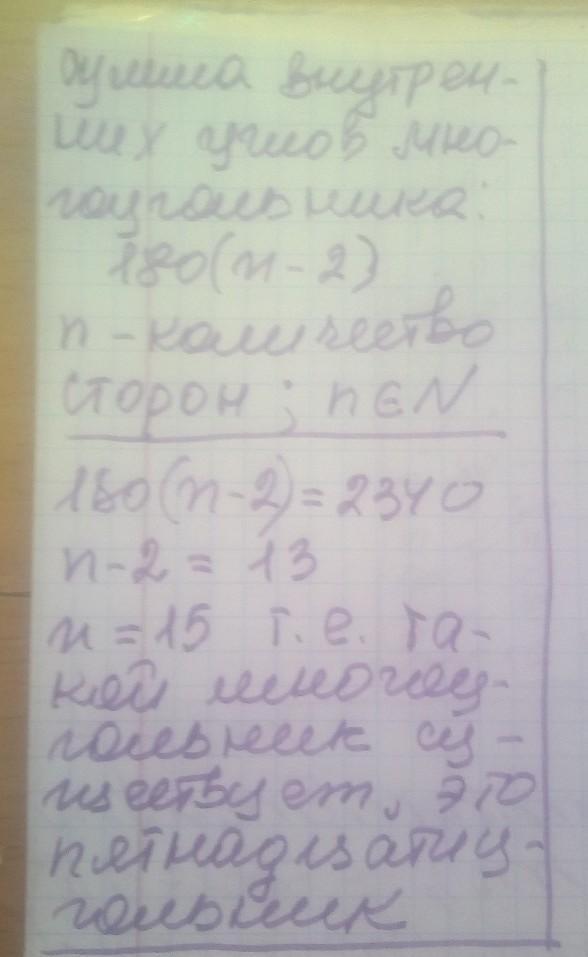 сумма внутрен-
них углов мно-
гоугольника:
180(n-2)
n - количество
сторон ; n∈N
180(n-2)=2340
n-2 = 13
n = 15 т.е. та-
кой многоу-
гольник су-
ществует, это
пятнадцатиу-
гольник